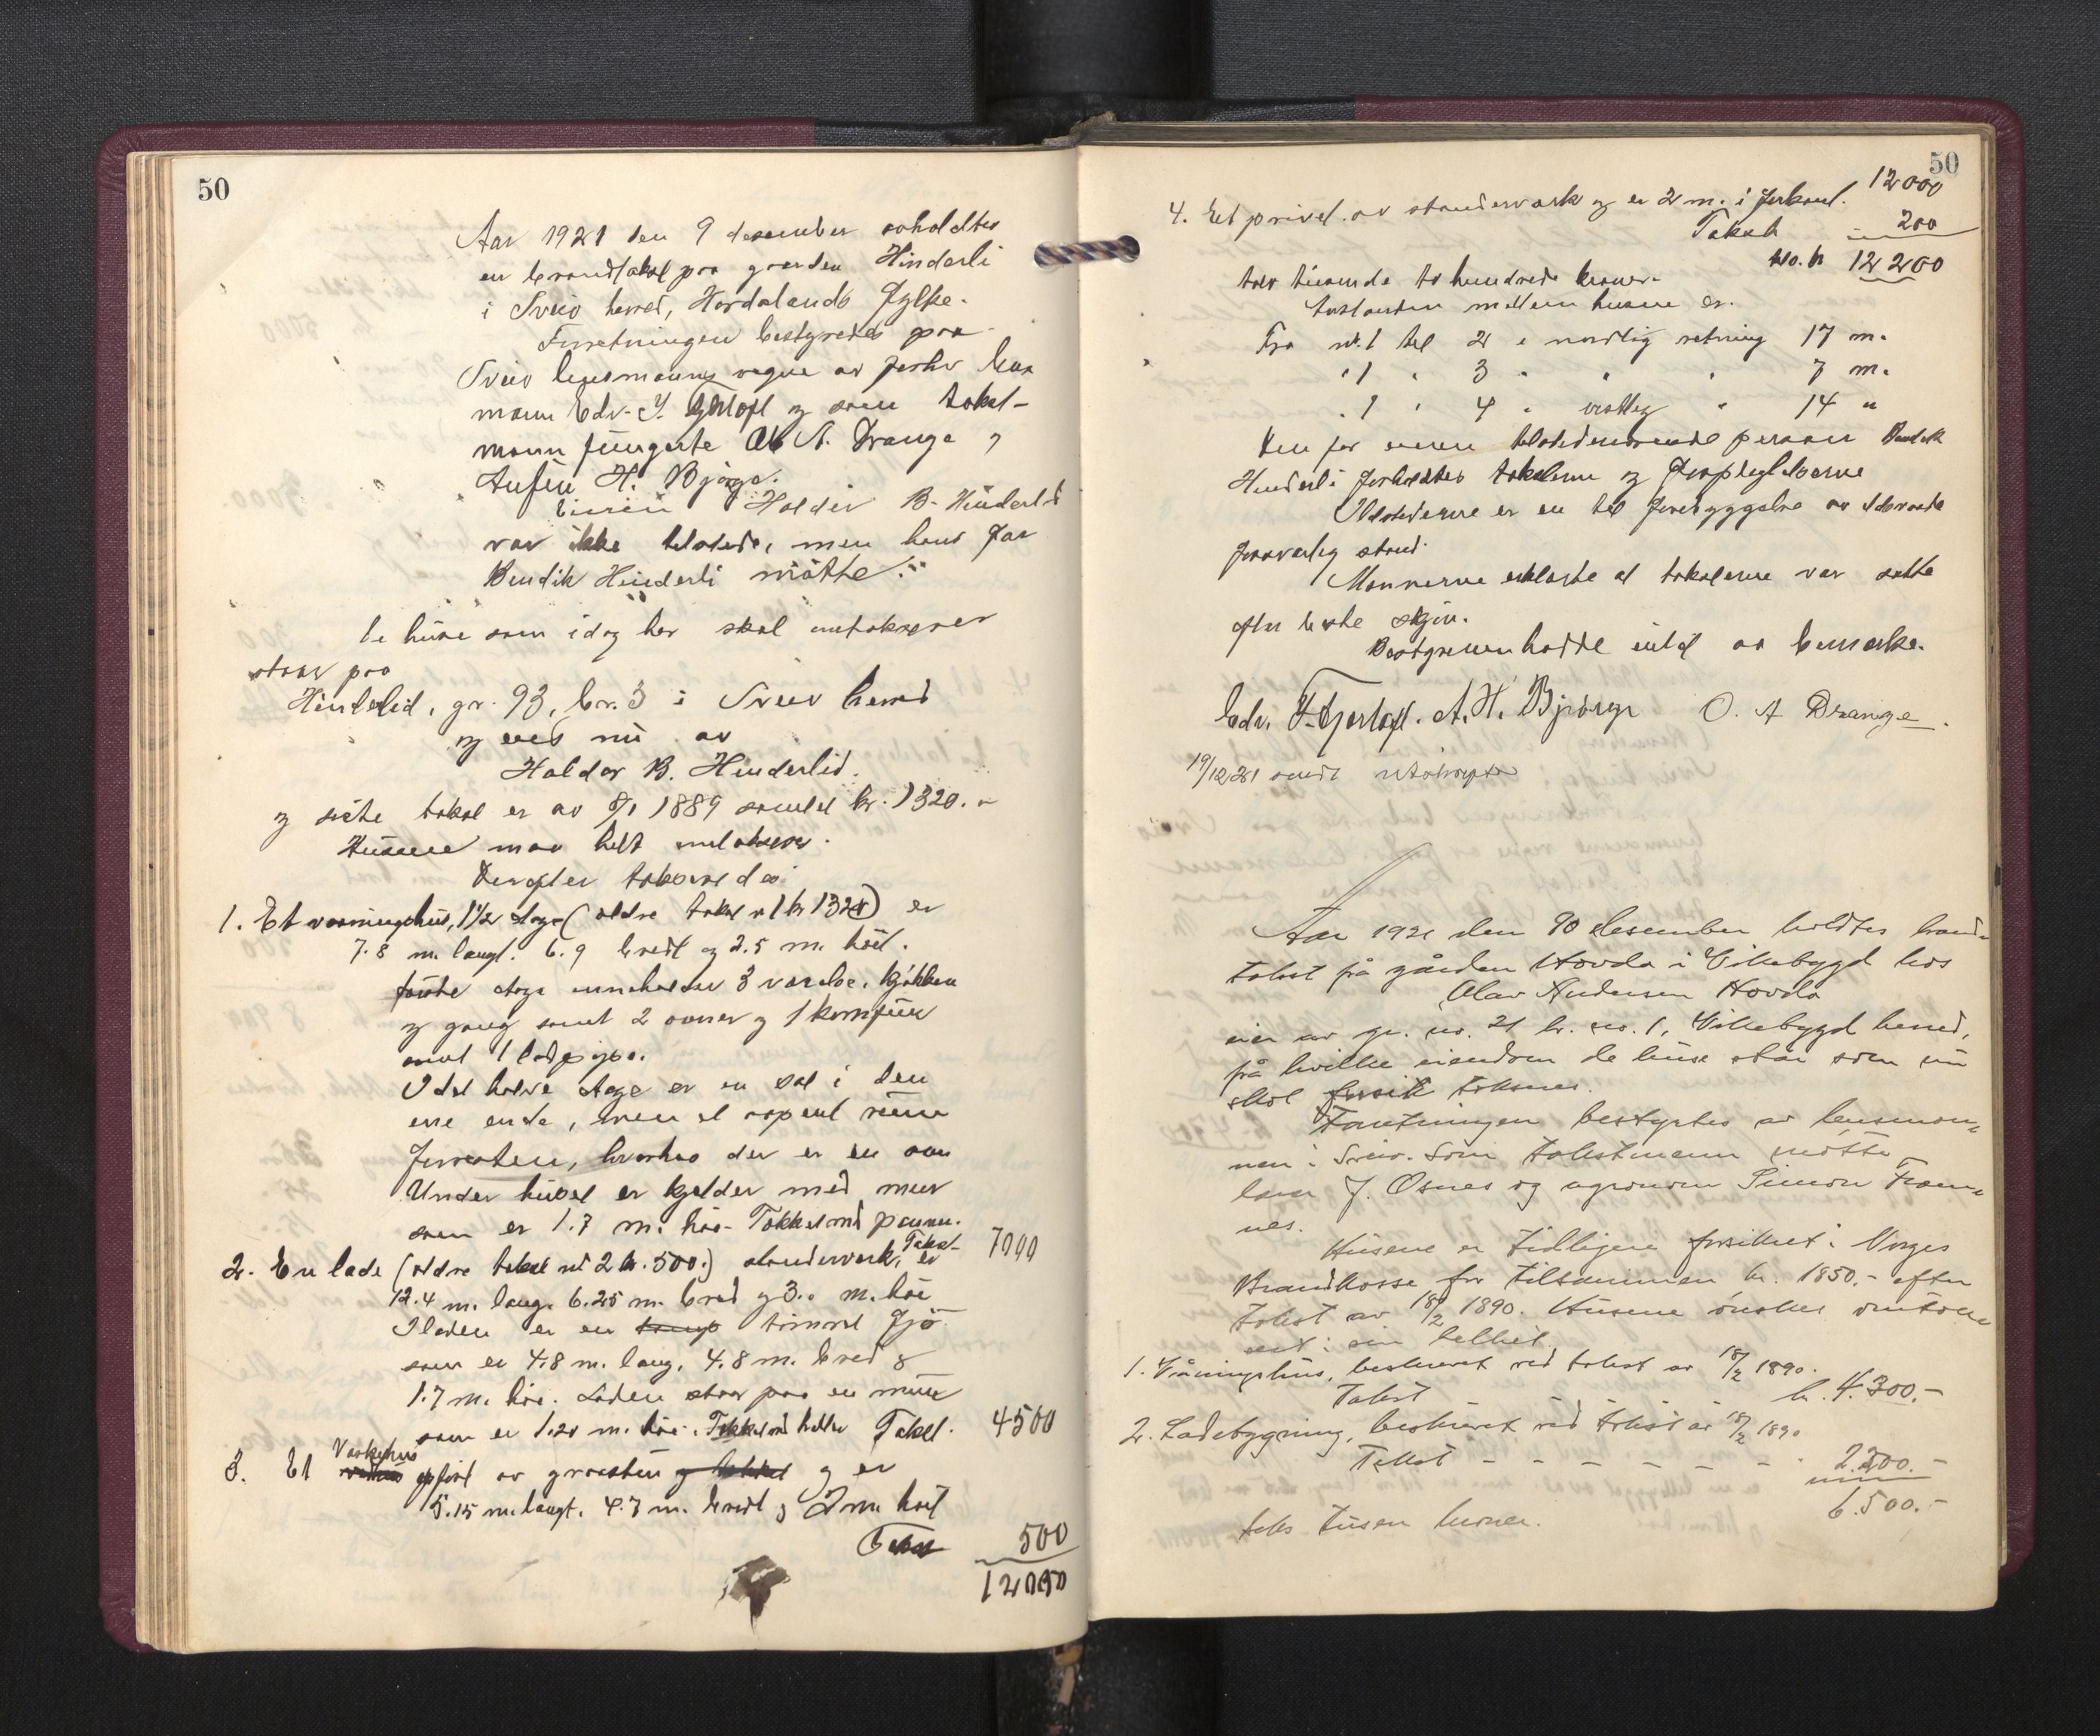 50
Aar 1921 den 9 desember avholdtes
en brandtakst paa gaarden Hinderli
i Sveio herred, Hordalands Fylke.
Forretningen bestyredes paa
Sveio lensmanns vegne av forhv lens
mann Edv. F. Gjertoft og som takst-
mann fungerte O. A. Drange og
Anfin H. Bjørge.
Eieren Haldor B. Hinderlid
var ikke tilstede, men hans far
Bendik Hinderli møtte.
De huse som idag her skal omtakseres
staar paa
Hinderlid, gr. 93, br. 3 i Sveio herred
og eies nu av
Haldor B. Hinderlid.
og siste takst er av 8/1 1889 samlet kr. 1320.-
Husene maa helt omtakseres.
Derefter taksertes
1. Et vaaningshus, 1½ etage (eldre takst nr 1 kr 1320) er
7.8 m. langt. 6.9 bredt og 2.5 m. høit.
første etage inneholder 3 værelse, kjøkken
og gang samt 2 ovner og 1 komfur
samt 1 ladpipe.
I det halve etage er en sal i den
ene ende, men et aapent rum
forresten, hvorhos der er en ovn
Under huset er kjelder med mur
som er 1.7 m. høi. Tækket med panner.
Takst 7000
2. En lade (eldre takst nr 2 kr. 500.) standerverk, er
12.4 m. lang. 6.25 m. bred og 3.0 m. høi
I laden er en tømret fjø
som er 4.8 m. lang, 4.8 m. bred &
1.7 m. høi. Laden staar paa en mur
som er 1.20 m. høi. Tækket med heller Takst. 4500
3. Et Vaskehus opført av graasten og tækket og er
5.15 m. langt. 4.7 m. bredt og 2 m. høit
Takst 500
12000
50
12000
4. Et privet av standerverk og er 2 m. i firkant.
Takst 200
tils. kr 12 200
tolv tusende to hundrede kroner.
Avstanden mellem husene er.
Fra nr. 1 til 2 i nordlig retning 17 m.
" 1 " 3 " " " 7 m.
" 1 " 4 " vestlig " 14 "
Den for eieren tilstedeværende person Bendik
Hinderli forholdtes taksterne og forpligtelserne
Ildstederne er en del forebyggelse av ildsvaade
forsvarlig stand.
Mannerne erklærte at taksterne var satte
efter beste skjøn.
Bestyreren hadde intet at bemerke.
Edv. F. Gjertoft. A. H. Bjørge O. A Drange.
19/12/21 sendt utskrift
Aar 1921 den 10 desember holdtes brand-
takst på gården Hovda i Vikebygd hos
Olav Andersen Hovda
eier av gr. nr. 21 br. nr. 1, Vikebygd herred,
på hvilke eiendom de huse står som nu
skal takseres.
Forretningen bestyrtes av lensman-
nen i Sveio. Som takstmenn møtte
Lars J. Osnes og agronom Simon Fram-
nes.
Husene er tidligere forsikret i Norges
Brandkasse for tilsammen kr. 1850.- efter
takst av 18/2 1890. Husene ønskes omtak-
sert i sin helhet.
1. Våningshus, beskrevet ved takst av 18/2 1890.
Takst kr. 4.300.-
2. Ladebygning, beskrevet ved takst av 18/2 1890
Takst - - - - - - 2.200.-
6.500.-
seks tusen kroner.